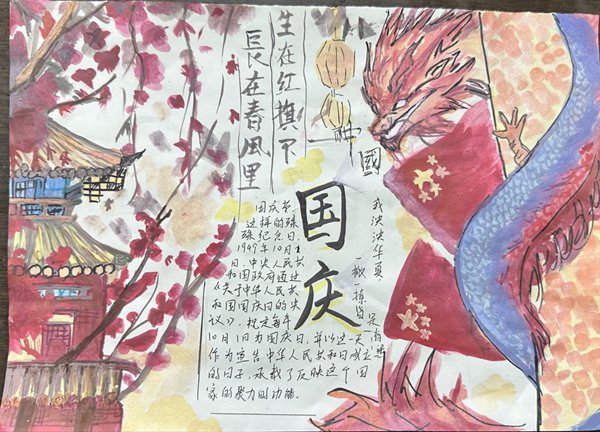 生在红旗下
長在春風里
中國
国庆
国庆节，
这样的特
殊纪念日，
1949年10月1
日，中央人民共
和国政府通过
《关于中华人民共
和国国庆日的决
议》，规定每年
10月1日为国庆日，并以这一天
作为宣告中华人民共和国成立
的日子，承载了反映这个国
家的聚力的功能。
我泱泱华夏，
一撇一捺皆
是